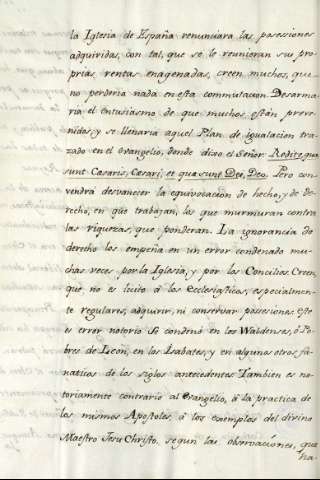 la Iglesia de España renunciara las posesiones
adquiridas, con tal, que se le reunieran sus pro-
prias rentas enagenadas, creen muchos, que
no perderia nada en esta commutacion. Desarma-
ria el entusiasmo de que muchos estàn preve-
nidos, y se llenaria aquel Plan de igualacion tra-
zado en el evangelio, donde dixo el Señor: Redite quæ
sunt Cæsaris, Cæsari; et quæ sunt Dei, Deo. Pero con-
vendrà desvanecer la equivocacion de hecho, y de de-
recho, en que trabajan, los que murmuran contra
las riquezas, que ponderan. La ignorancia de
derecho los empeña en un error condenado mu-
chas veces por la Iglesia, y por los Concilios. Creen,
que no es licito à los Ecclesiasticos, especialmen-
te regulares, adquirir, ni conservar possesiones: este
es error notorio. Se condenò en los Waldenses, ò Po-
bres de Leon, en los Isabates, y en algunos otros fa-
naticos de los siglos antecedentes. Tambien es no-
toriamente contrario al evangelio, à la practica de
los mismos Apostoles, à los exemplos del divino
Maestro Jesu Christo. segun las observaciones, que
ha-